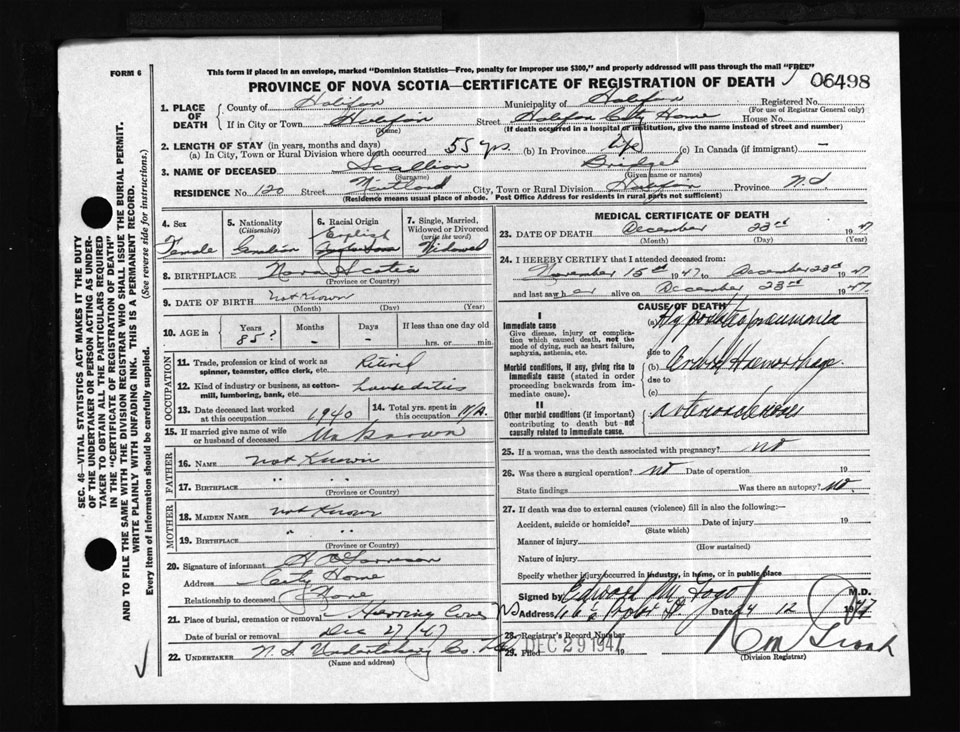 FORM 6
This form if placed in an envelope, marked "Dominion Statistics—Free, penalty for improper use $300," and properly addressed will pass through the mail "FREE"
PROVINCE OF NOVA SCOTIA—CERTIFICATE OF REGISTRATION OF DEATH
06498
SEC. 46—VITAL STATISTICS ACT MAKES IT THE DUTY
OF THE UNDERTAKER OR PERSON ACTING AS UNDER-
TAKER TO OBTAIN ALL THE PARTICULARS REQUIRED
IN THE "CERTIFICATE OF REGISTRATION OF DEATH"
AND TO FILE THE SAME WITH THE DIVISION REGISTRAR WHO SHALL ISSUE THE BURIAL PERMIT.
WRITE PLAINLY WITH UNFADING INK. THIS IS A PERMANENT RECORD.
Every item of information should be carefully supplied. (See reverse side for instructions.)
1. PLACE OF DEATH
County of Halifax Municipality of Halifax Registered No.
(For use of Registrar General only)
If in City or Town Halifax Street Halifax City Home House No.
(Name) (If death occurred in a hospital or institution, give the name instead of street and number)
2. LENGTH OF STAY (in years, months and days)
(a) In City, Town or Rural Division where death occurred 55 yrs. (b) In Province Life (c) In Canada (if immigrant) —
3. NAME OF DECEASED Scallion Bridget
(Surname) (Given name or names)
RESIDENCE No. 120 Street Maitland City, Town or Rural Division Halifax Province N.S.
(Residence means usual place of abode. Post Office Address for residents in rural parts not sufficient)
4. Sex
Female
5. Nationality
(Citizenship)
Canadian
6. Racial Origin
English
7. Single, Married,
Widowed or Divorced
(write the word)
Widowed
8. BIRTHPLACE Nova Scotia
(Province or Country)
9. DATE OF BIRTH not Known
(Month) (Day) (Year)
10. AGE in
Years Months Days If less than one day old
85? - - hrs. or min.
OCCUPATION
11. Trade, profession or kind of work as
spinner, teamster, office clerk, etc. Retired
12. Kind of industry or business, as cotton-
mill, lumbering, bank, etc. house duties
13. Date deceased last worked
at this occupation 1940
14. Total yrs. spent in
this occupation
15. If married give name of wife
or husband of deceased Unknown
FATHER
16. NAME not Known
17. BIRTHPLACE " "
(Province or Country)
MOTHER
18. MAIDEN NAME not Known
19. BIRTHPLACE " "
(Province or Country)
20. Signature of informant
Address City Home
Relationship to deceased None
21. Place of burial, cremation or removal Herring Cove N.S.
Date of burial or removal Dec 27/47
22. UNDERTAKER N.S Undertaking Co. Ltd
(Name and address)
MEDICAL CERTIFICATE OF DEATH
23. DATE OF DEATH December 23rd 1947
(Month) (Day) (Year)
24. I HEREBY CERTIFY that I attended deceased from:
November 15th 1947 to December 23rd 1947
and last saw her alive on December 23rd 1947.
CAUSE OF DEATH
I
Immediate cause
Give disease, injury or complica-
tion which caused death, not the
mode of dying, such as heart failure,
asphyxia, asthenia, etc.
(a) Hypostatic pneumonia
due to
Morbid conditions, if any, giving rise to
immediate cause (stated in order
proceeding backwards from im-
mediate cause).
(b) Cerebral Haemorrhage
due to
(c)
II
Other morbid conditions (if important)
contributing to death but not
causally related to immediate cause.
arteriosclerosis
25. If a woman, was the death associated with pregnancy? no
26. Was there a surgical operation? no Date of operation 19
State findings Was there an autopsy? no.
27. If death was due to external causes (violence) fill in also the following:—
Accident, suicide or homicide? Date of injury 19
(State which)
Manner of injury
(How sustained)
Nature of injury
Specify whether injury occurred in industry, in home, or in public place
Signed by Edward M. Fogo M.D.
Address Date 24 12 1947
28. Registrar's Record Number
29. Filed DEC 29 1947 19
(Division Registrar)